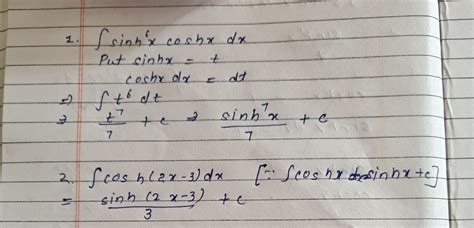 1. ∫ sinh⁶x coshx dx
Put sinhx = t
coshx dx = dt
⇒ ∫ t⁶ dt
⇒ t⁷/7 + c ⇒ sinh⁷x/7 + c
2. ∫ cosh(2x-3) dx [∵ ∫ coshx dx = sinhx + c]
= sinh(2x-3)/3 + c